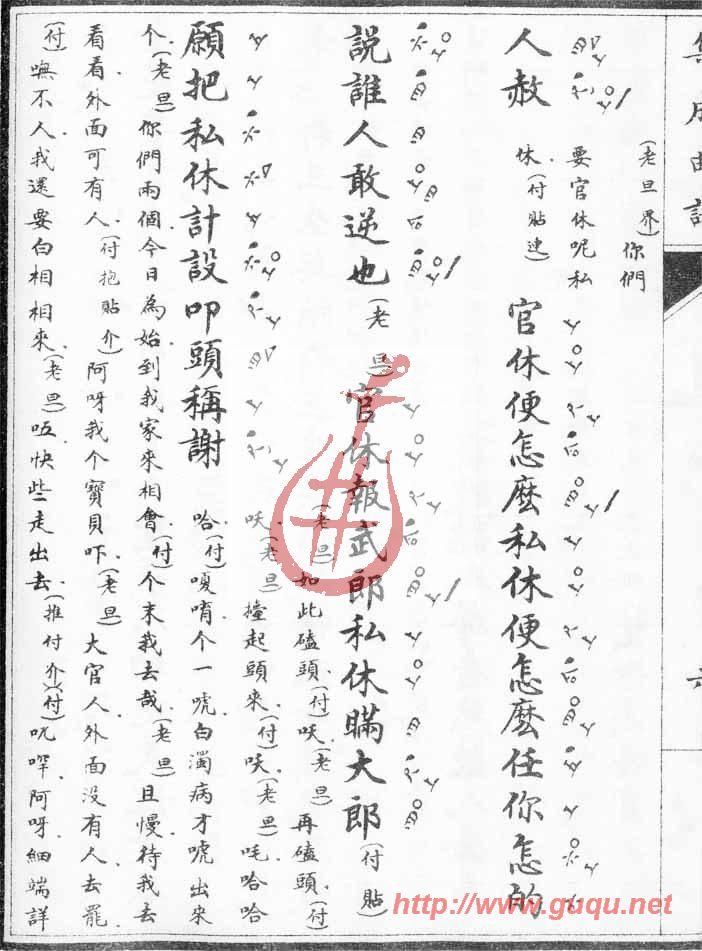 集成曲譜
六
(老旦界)你們
人赦 要官休呢私
休.(付貼連) 官休便怎麽私休便怎麽任你怎的
說誰人敢逆也(老旦)官休報武郎私休瞞大郎(付貼)
願把私休計設叩頭稱謝
(老旦)如此磕頭.(付)㕭.(老旦)再磕頭.(付)
㕭.(老旦)擡起頭來.(付)㕭.(老旦)吒哈哈
哈.(付)嗄唷个一唬.白濁病才唬出來
个.(老旦)你們兩個.今日為始.到我家來相會.(付)个末我去哉.(老旦)且慢.待我去
看看.外面可有人.(付抱貼介)阿呀我个寶貝吓.(老旦)大官人.外面沒有人.去罷.
(付)嘸不人.我還要白相相來.(老旦)㕶.快些走出去.(推付介)(付)吮哻.阿呀.細端詳
http://www.guqu.net